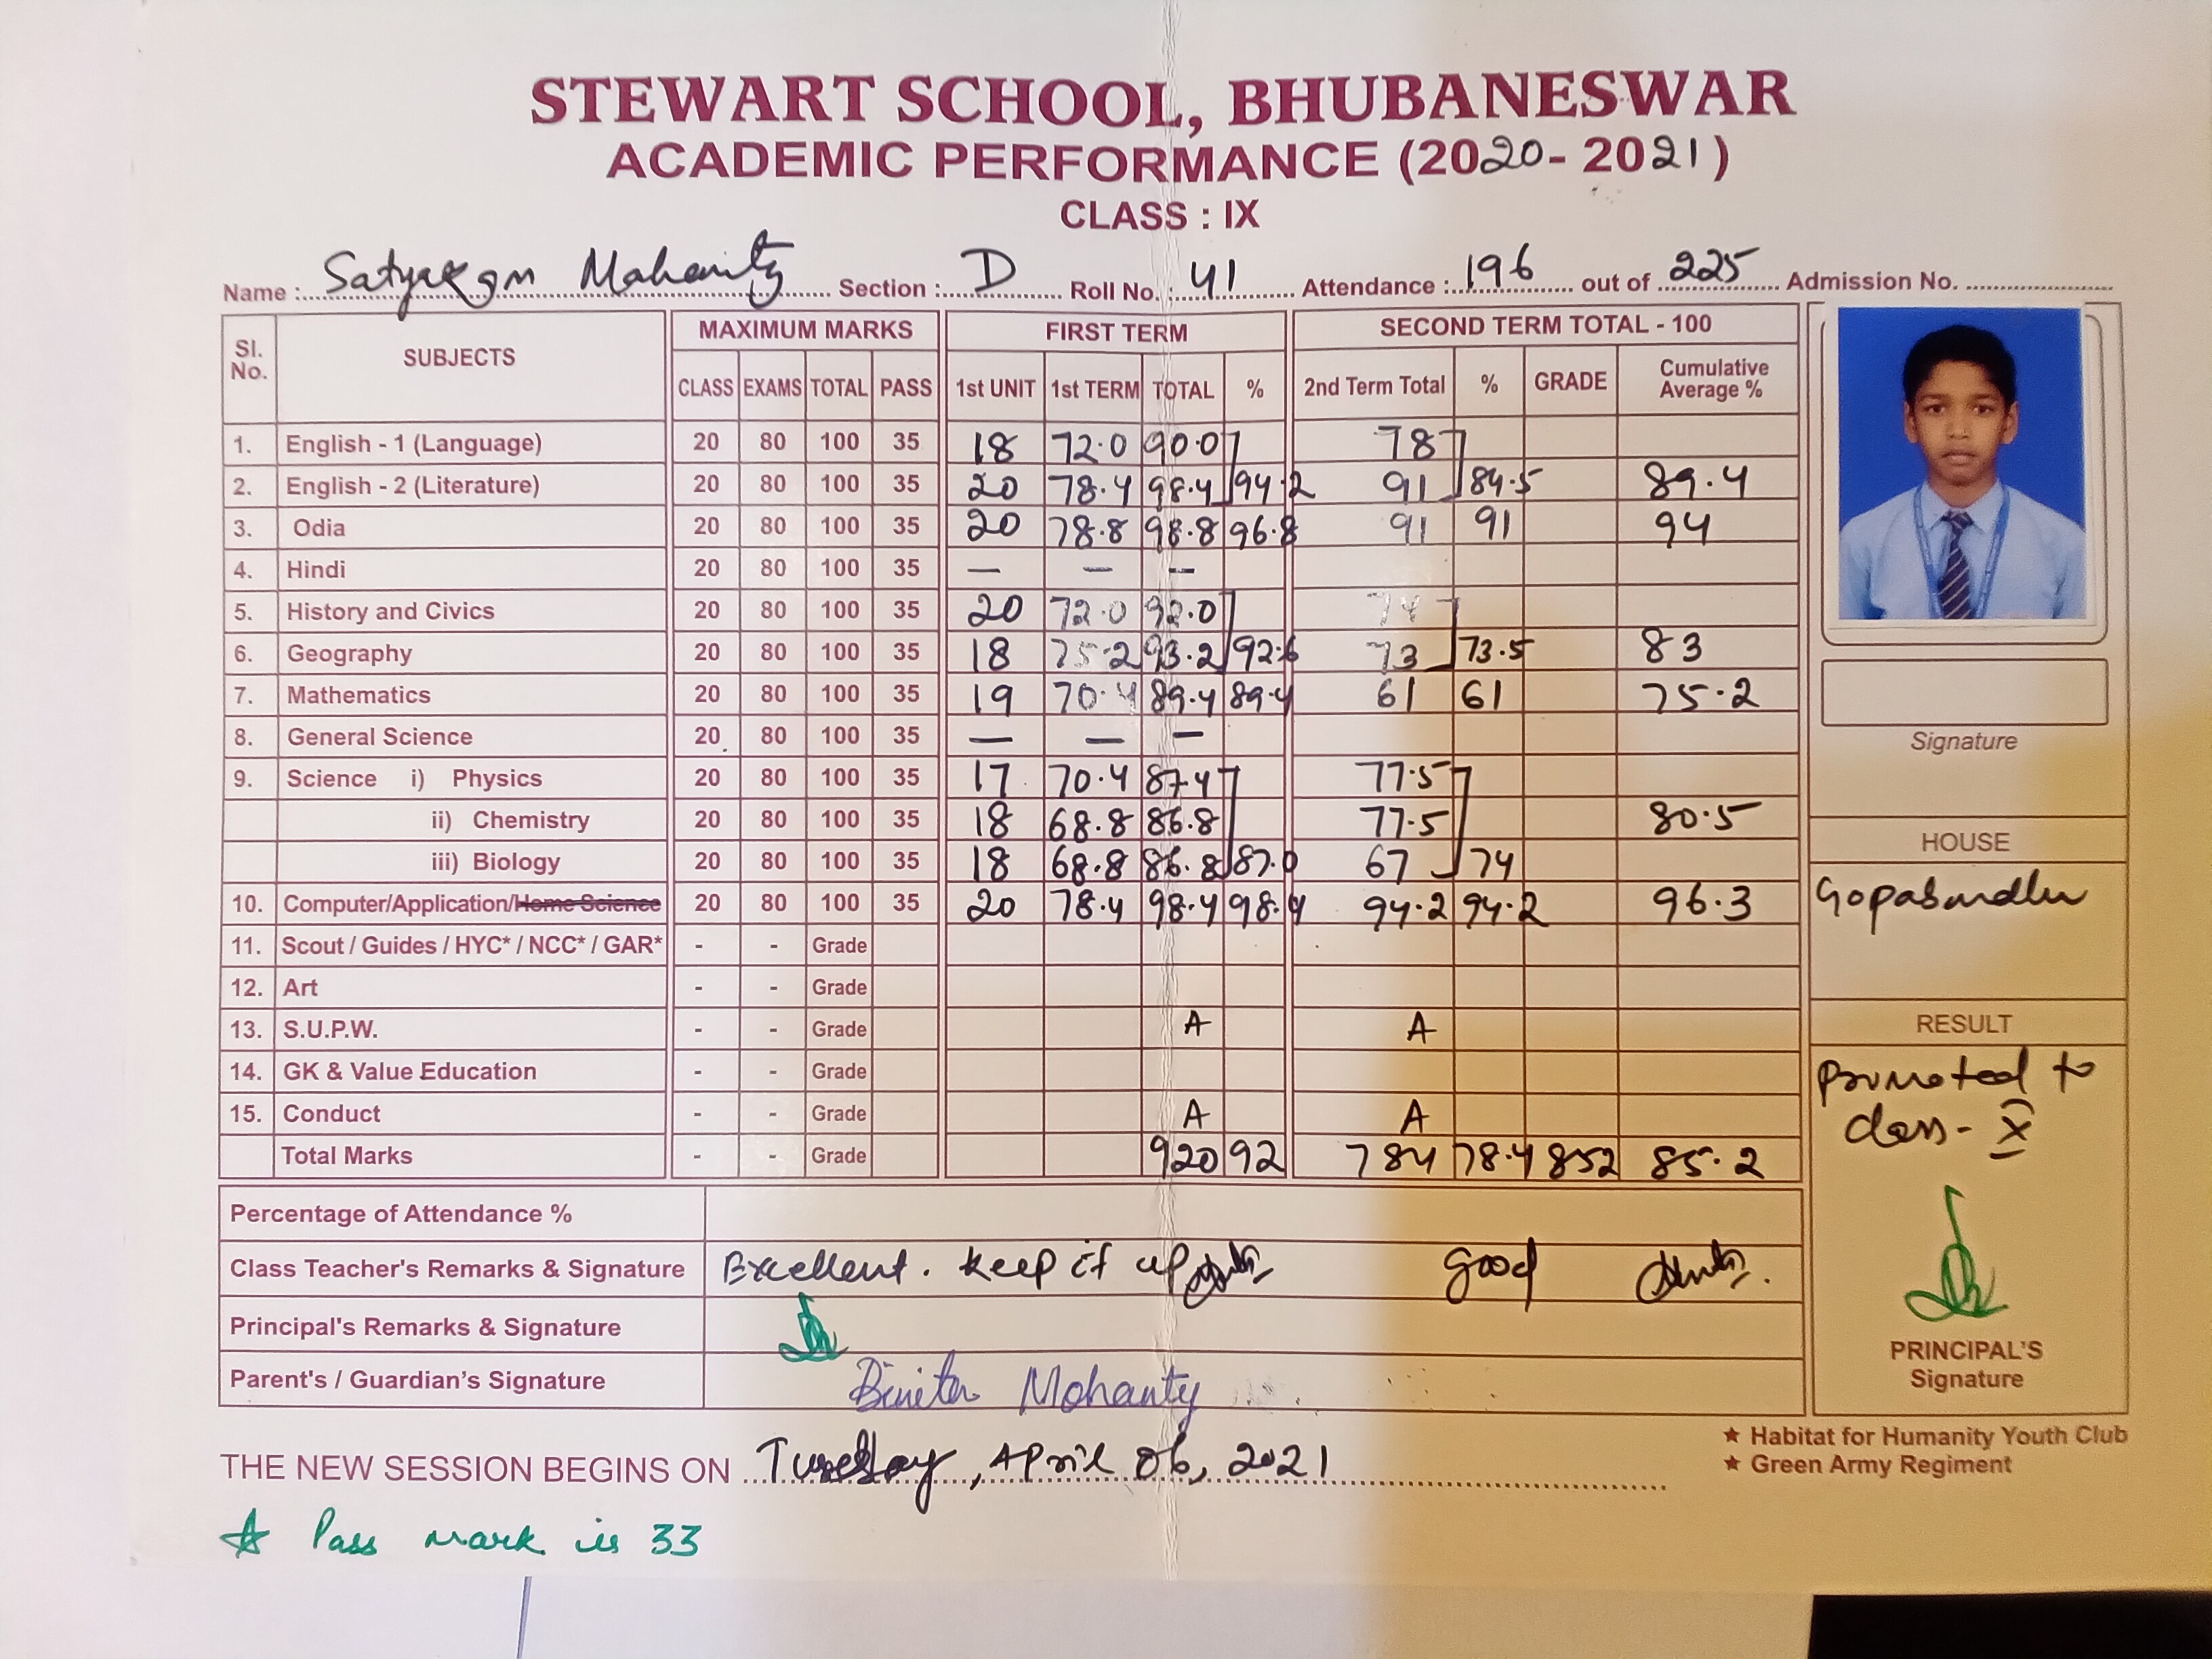 STEWART SCHOOL, BHUBANESWAR
ACADEMIC PERFORMANCE (2020-2021)
CLASS : IX
Name : Satyakam Mohanty Section : D Roll No. : 41 Attendance : 196 out of 225 Admission No.
Sl. No. SUBJECTS MAXIMUM MARKS FIRST TERM SECOND TERM TOTAL - 100
CLASS EXAMS TOTAL PASS 1st UNIT 1st TERM TOTAL % 2nd Term Total % GRADE Cumulative Average %
1. English - 1 (Language) 20 80 100 35 18 72.0 90.0 78
2. English - 2 (Literature) 20 80 100 35 20 78.4 98.4 94.2 91 84.5 89.4
3. Odia 20 80 100 35 20 78.8 98.8 96.8 91 91 94
4. Hindi 20 80 100 35 — — —
5. History and Civics 20 80 100 35 20 72.0 92.0 74
6. Geography 20 80 100 35 18 75.2 93.2 92.6 73 73.5 83
7. Mathematics 20 80 100 35 19 70.4 89.4 89.4 61 61 75.2
8. General Science 20 80 100 35 — — —
9. Science i) Physics 20 80 100 35 17 70.4 87.4 77.5
ii) Chemistry 20 80 100 35 18 68.8 86.8 77.5 80.5
iii) Biology 20 80 100 35 18 68.8 86.8 87.0 67 74
10. Computer/Application/Home Science 20 80 100 35 20 78.4 98.4 98.4 94.2 94.2 96.3
11. Scout / Guides / HYC* / NCC* / GAR* - - Grade
12. Art - - Grade
13. S.U.P.W. - - Grade A A
14. GK & Value Education - - Grade
15. Conduct - - Grade A A
Total Marks - - Grade 920 92 784 78.4 852 85.2
Signature
HOUSE
Gopabandhu
RESULT
Promoted to
class - X
PRINCIPAL'S
Signature
Percentage of Attendance %
Class Teacher's Remarks & Signature Excellent. Keep it up Good
Principal's Remarks & Signature
Parent's / Guardian's Signature Binita Mohanty
★ Habitat for Humanity Youth Club
★ Green Army Regiment
THE NEW SESSION BEGINS ON Tuesday, April 06, 2021
☆ Pass mark is 33